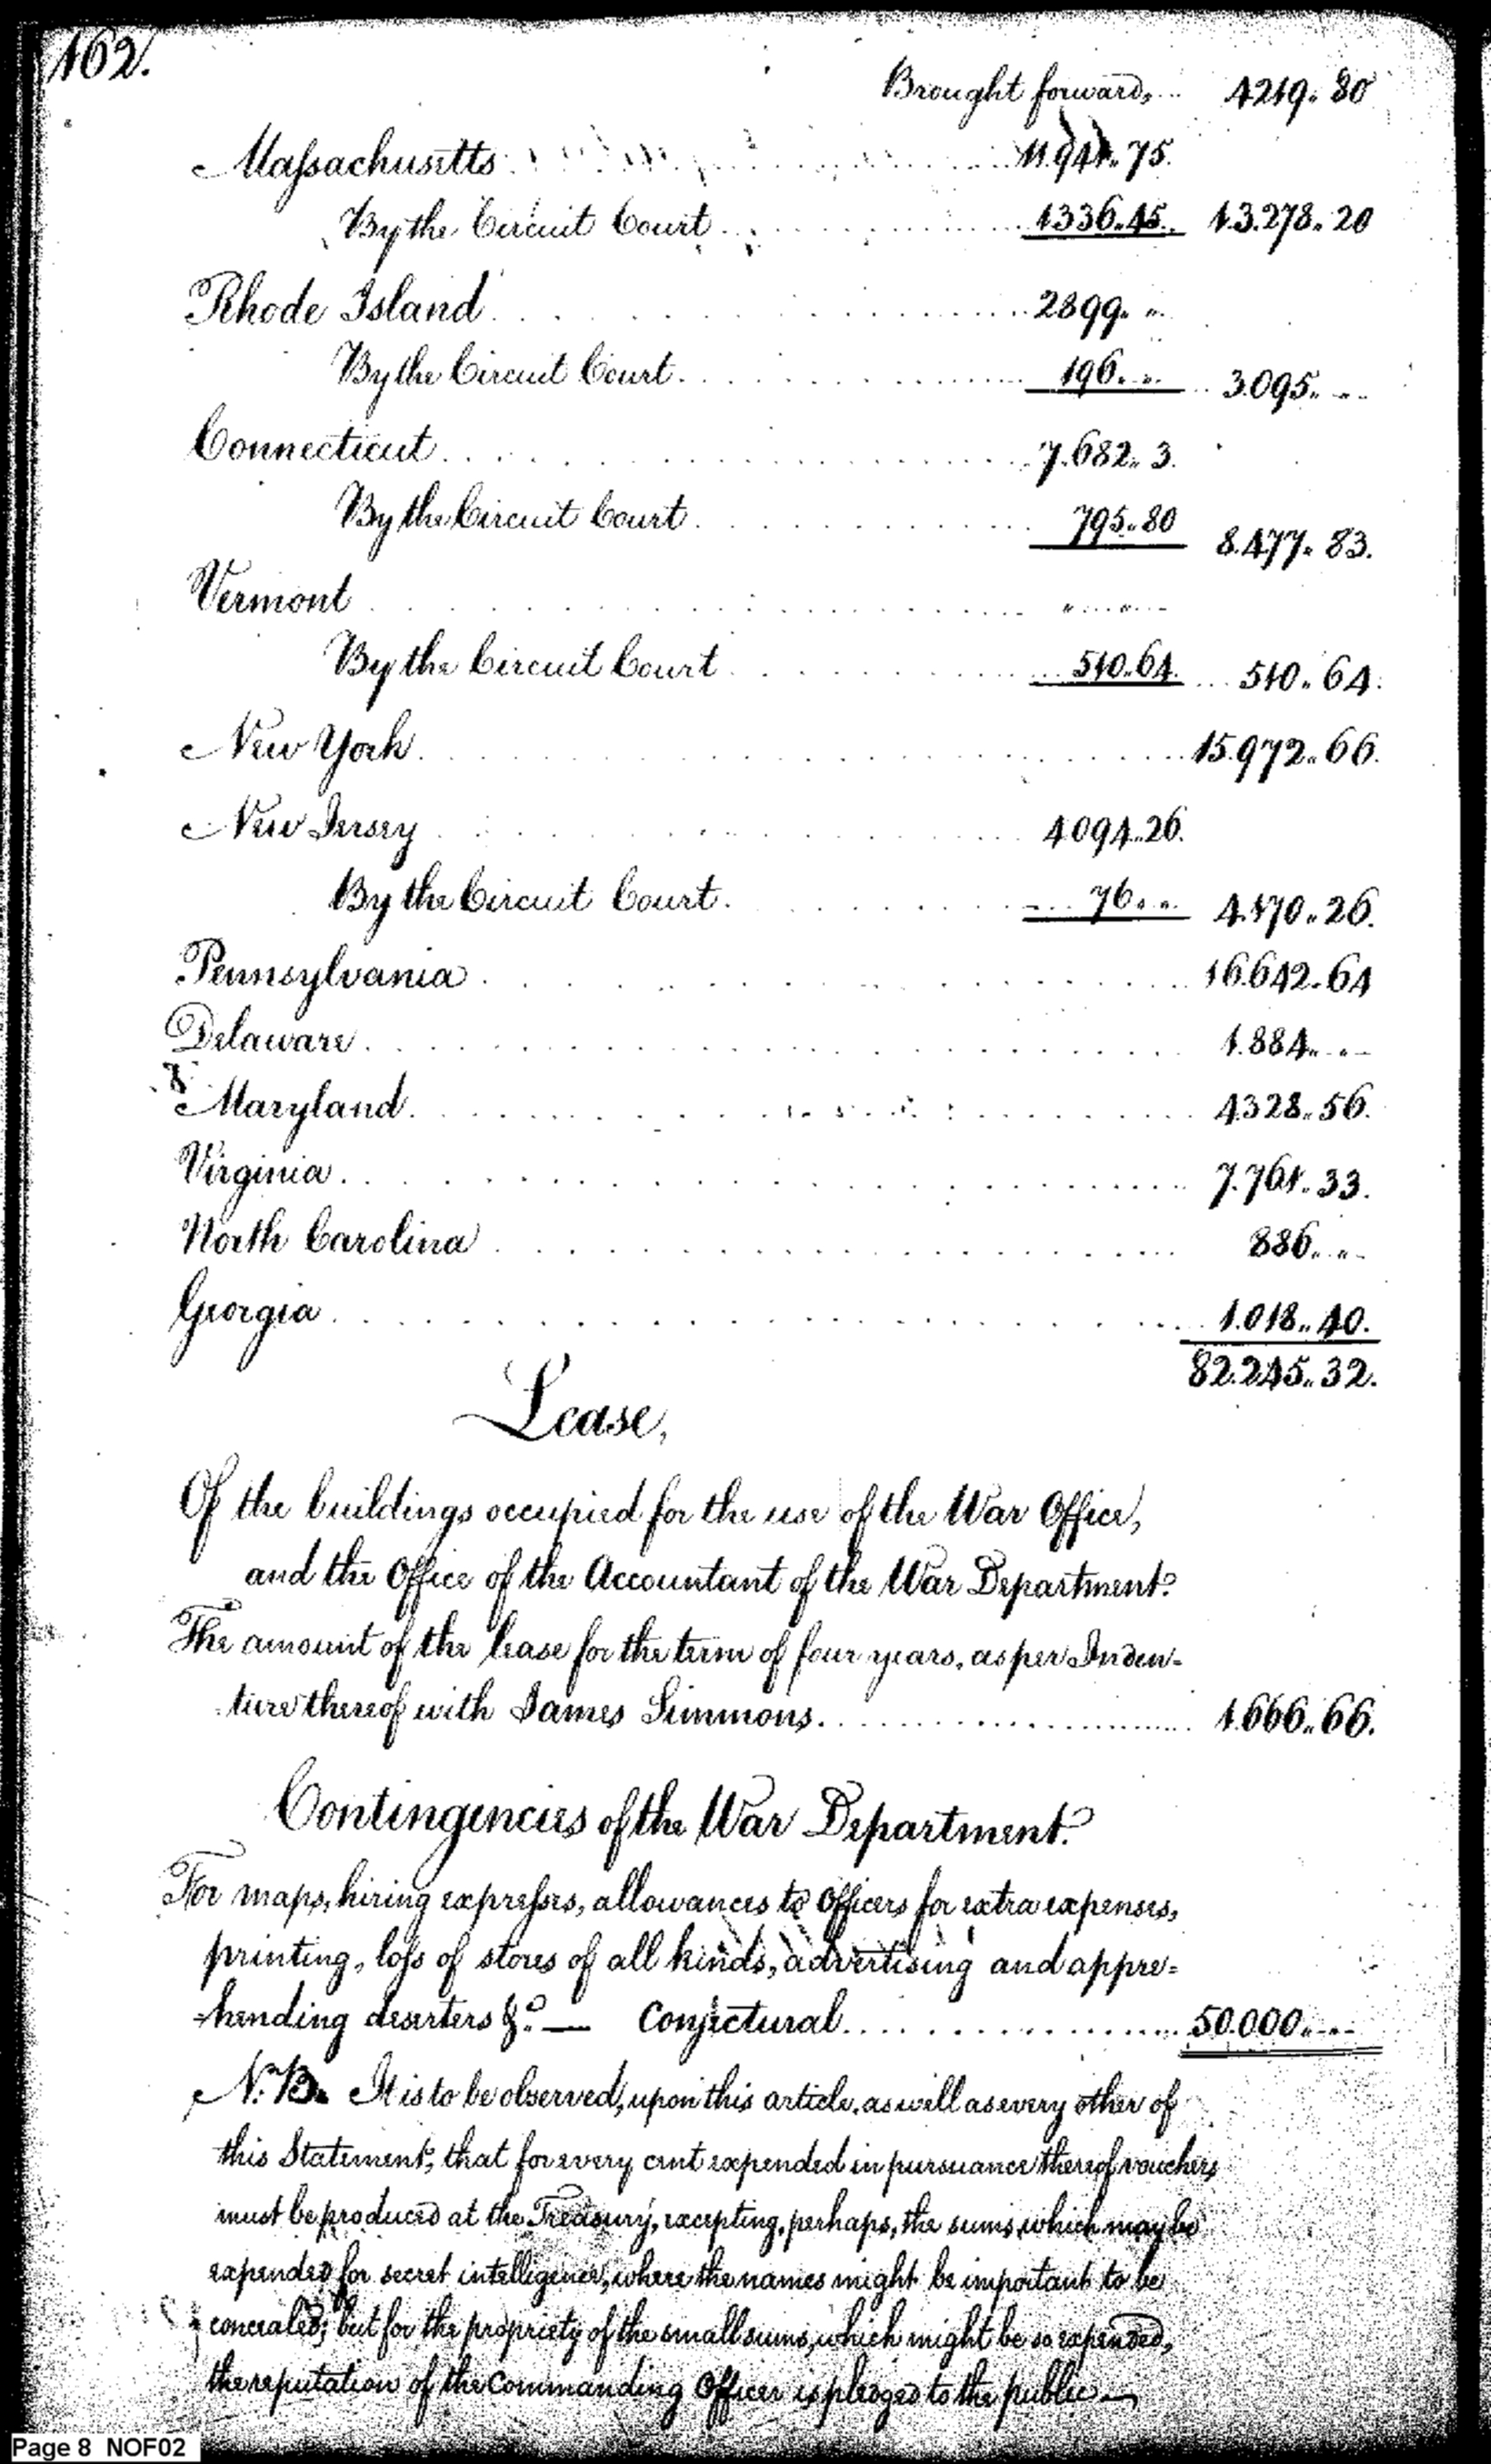 162.
Brought forward, .. 4219.. 80
Massachusetts 11.941.. 75.
By the Circuit Court 1336..45.. 13.278.. 20
Rhode Island 2899. "
By the Circuit Court 196. " 3.095. "
Connecticut 7.682.. 3.
By the Circuit Court 795..80 8.477.. 83.
Vermont " "
By the Circuit Court 510..64. 510.. 64.
New York 15.972.. 66.
New Jersey 4094..26.
By the Circuit Court 76. " 4.170.. 26.
Pennsylvania 16.642.. 64
Delaware 1.884.. "
Maryland 4328.. 56.
Virginia 7.761.. 33.
North Carolina 886.. "
Georgia 1.018.. 40.
82.245.. 32.
Lease,
Of the buildings occupied for the use of the War Office,
and the Office of the Accountant of the War Department.
The amount of the lease for the term of four years, as per Inden-
ture thereof with James Simmons. 1.666.. 66.
Contingencies of the War Department.
For maps, hiring expresses, allowances to Officers for extra expenses,
printing, loss of stores of all kinds, advertising and appre=
=hending deserters &c. — Conjectural 50.000.. "
N.B. It is to be observed, upon this article, as well as every other of
this Statement, that for every cent expended in pursuance thereof vouchers
must be produced at the Treasury, excepting, perhaps, the sums, which may be
expended for secret intelligence, where the names might be important to be
concealed; but for the propriety of the small sums, which might be so expended,
the reputation of the Commanding Officer is pledged to the public —
Page 8 NOF02